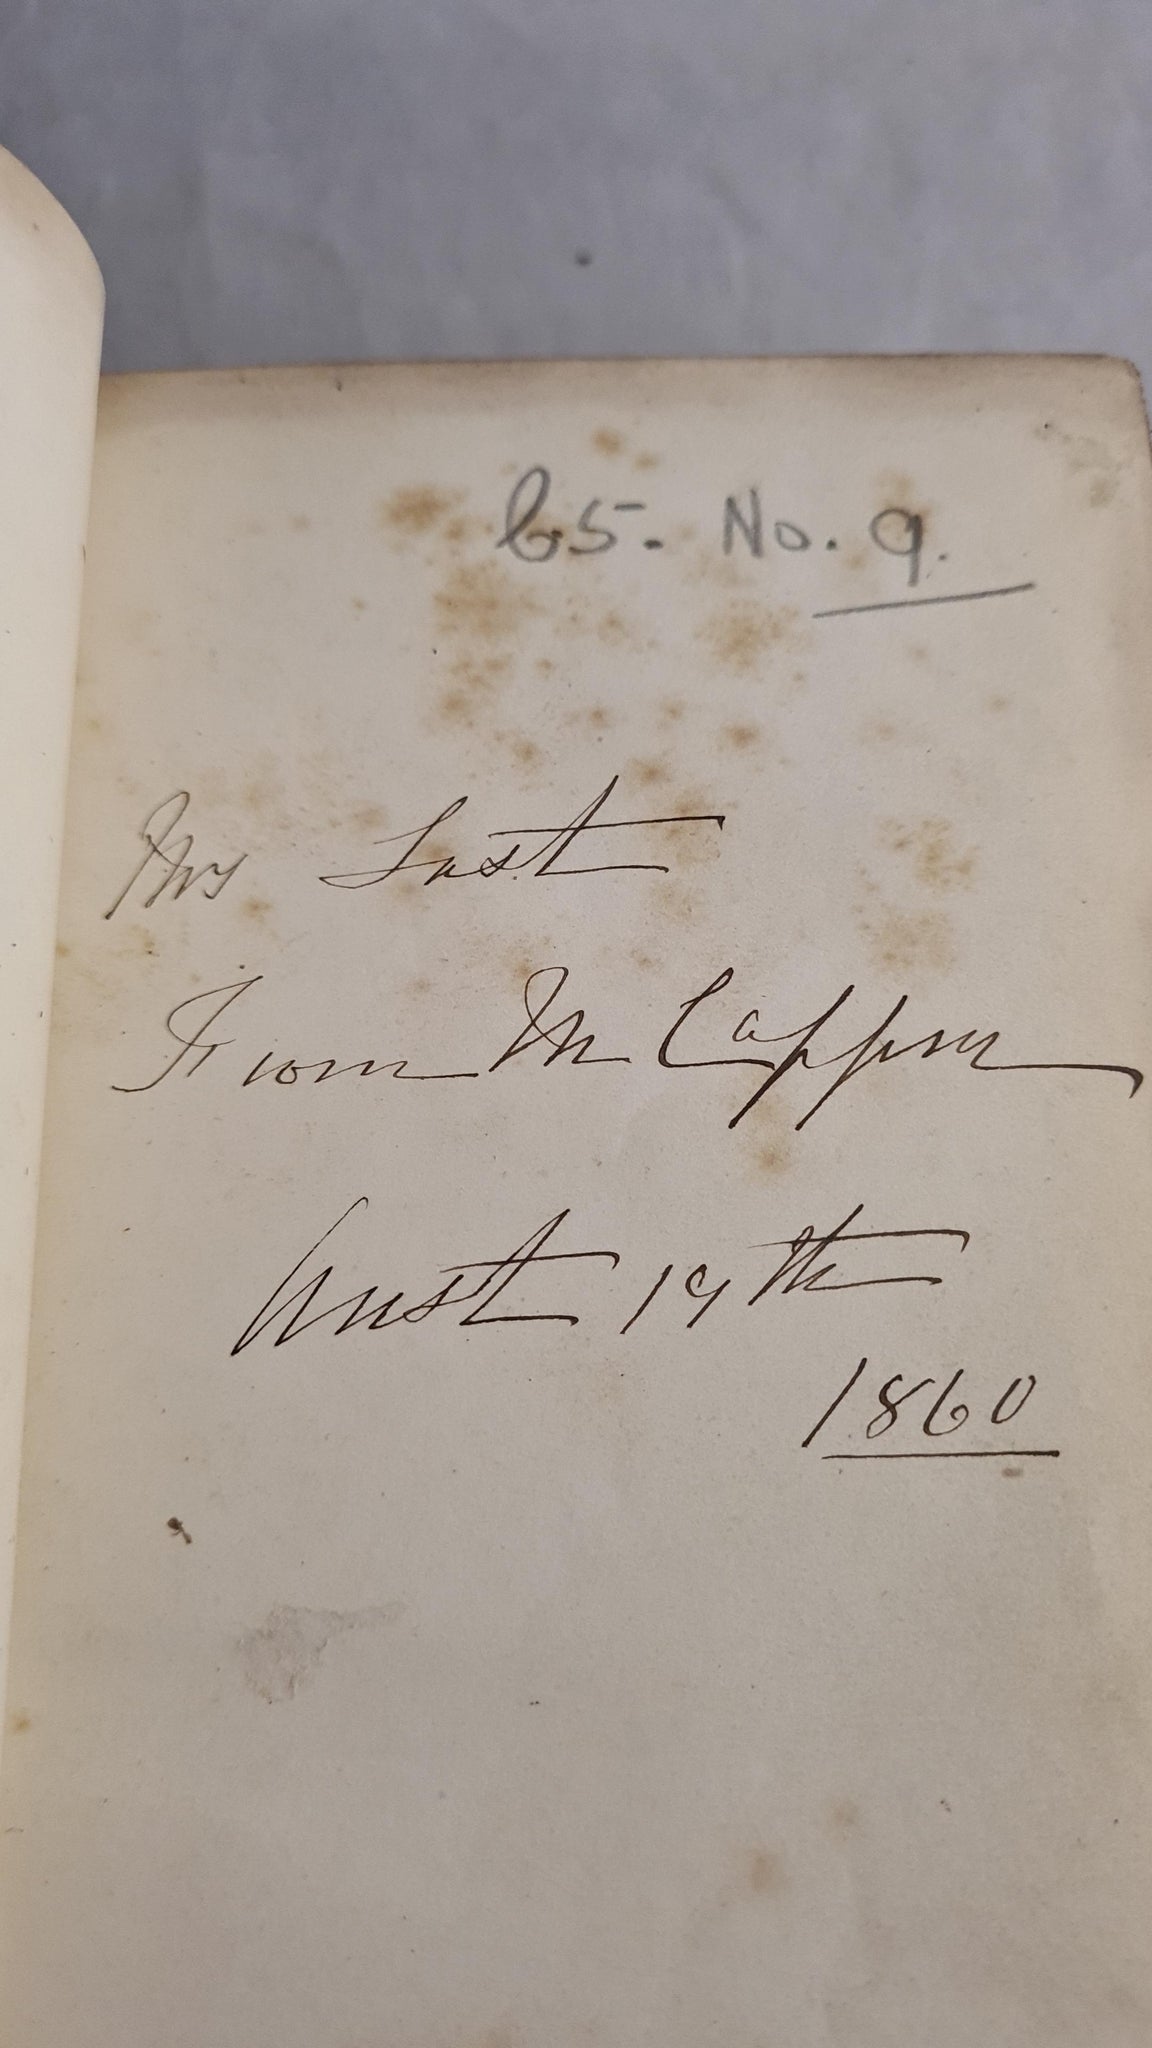 65. No. 9.
Mrs Last
From M Capper
19th
1860